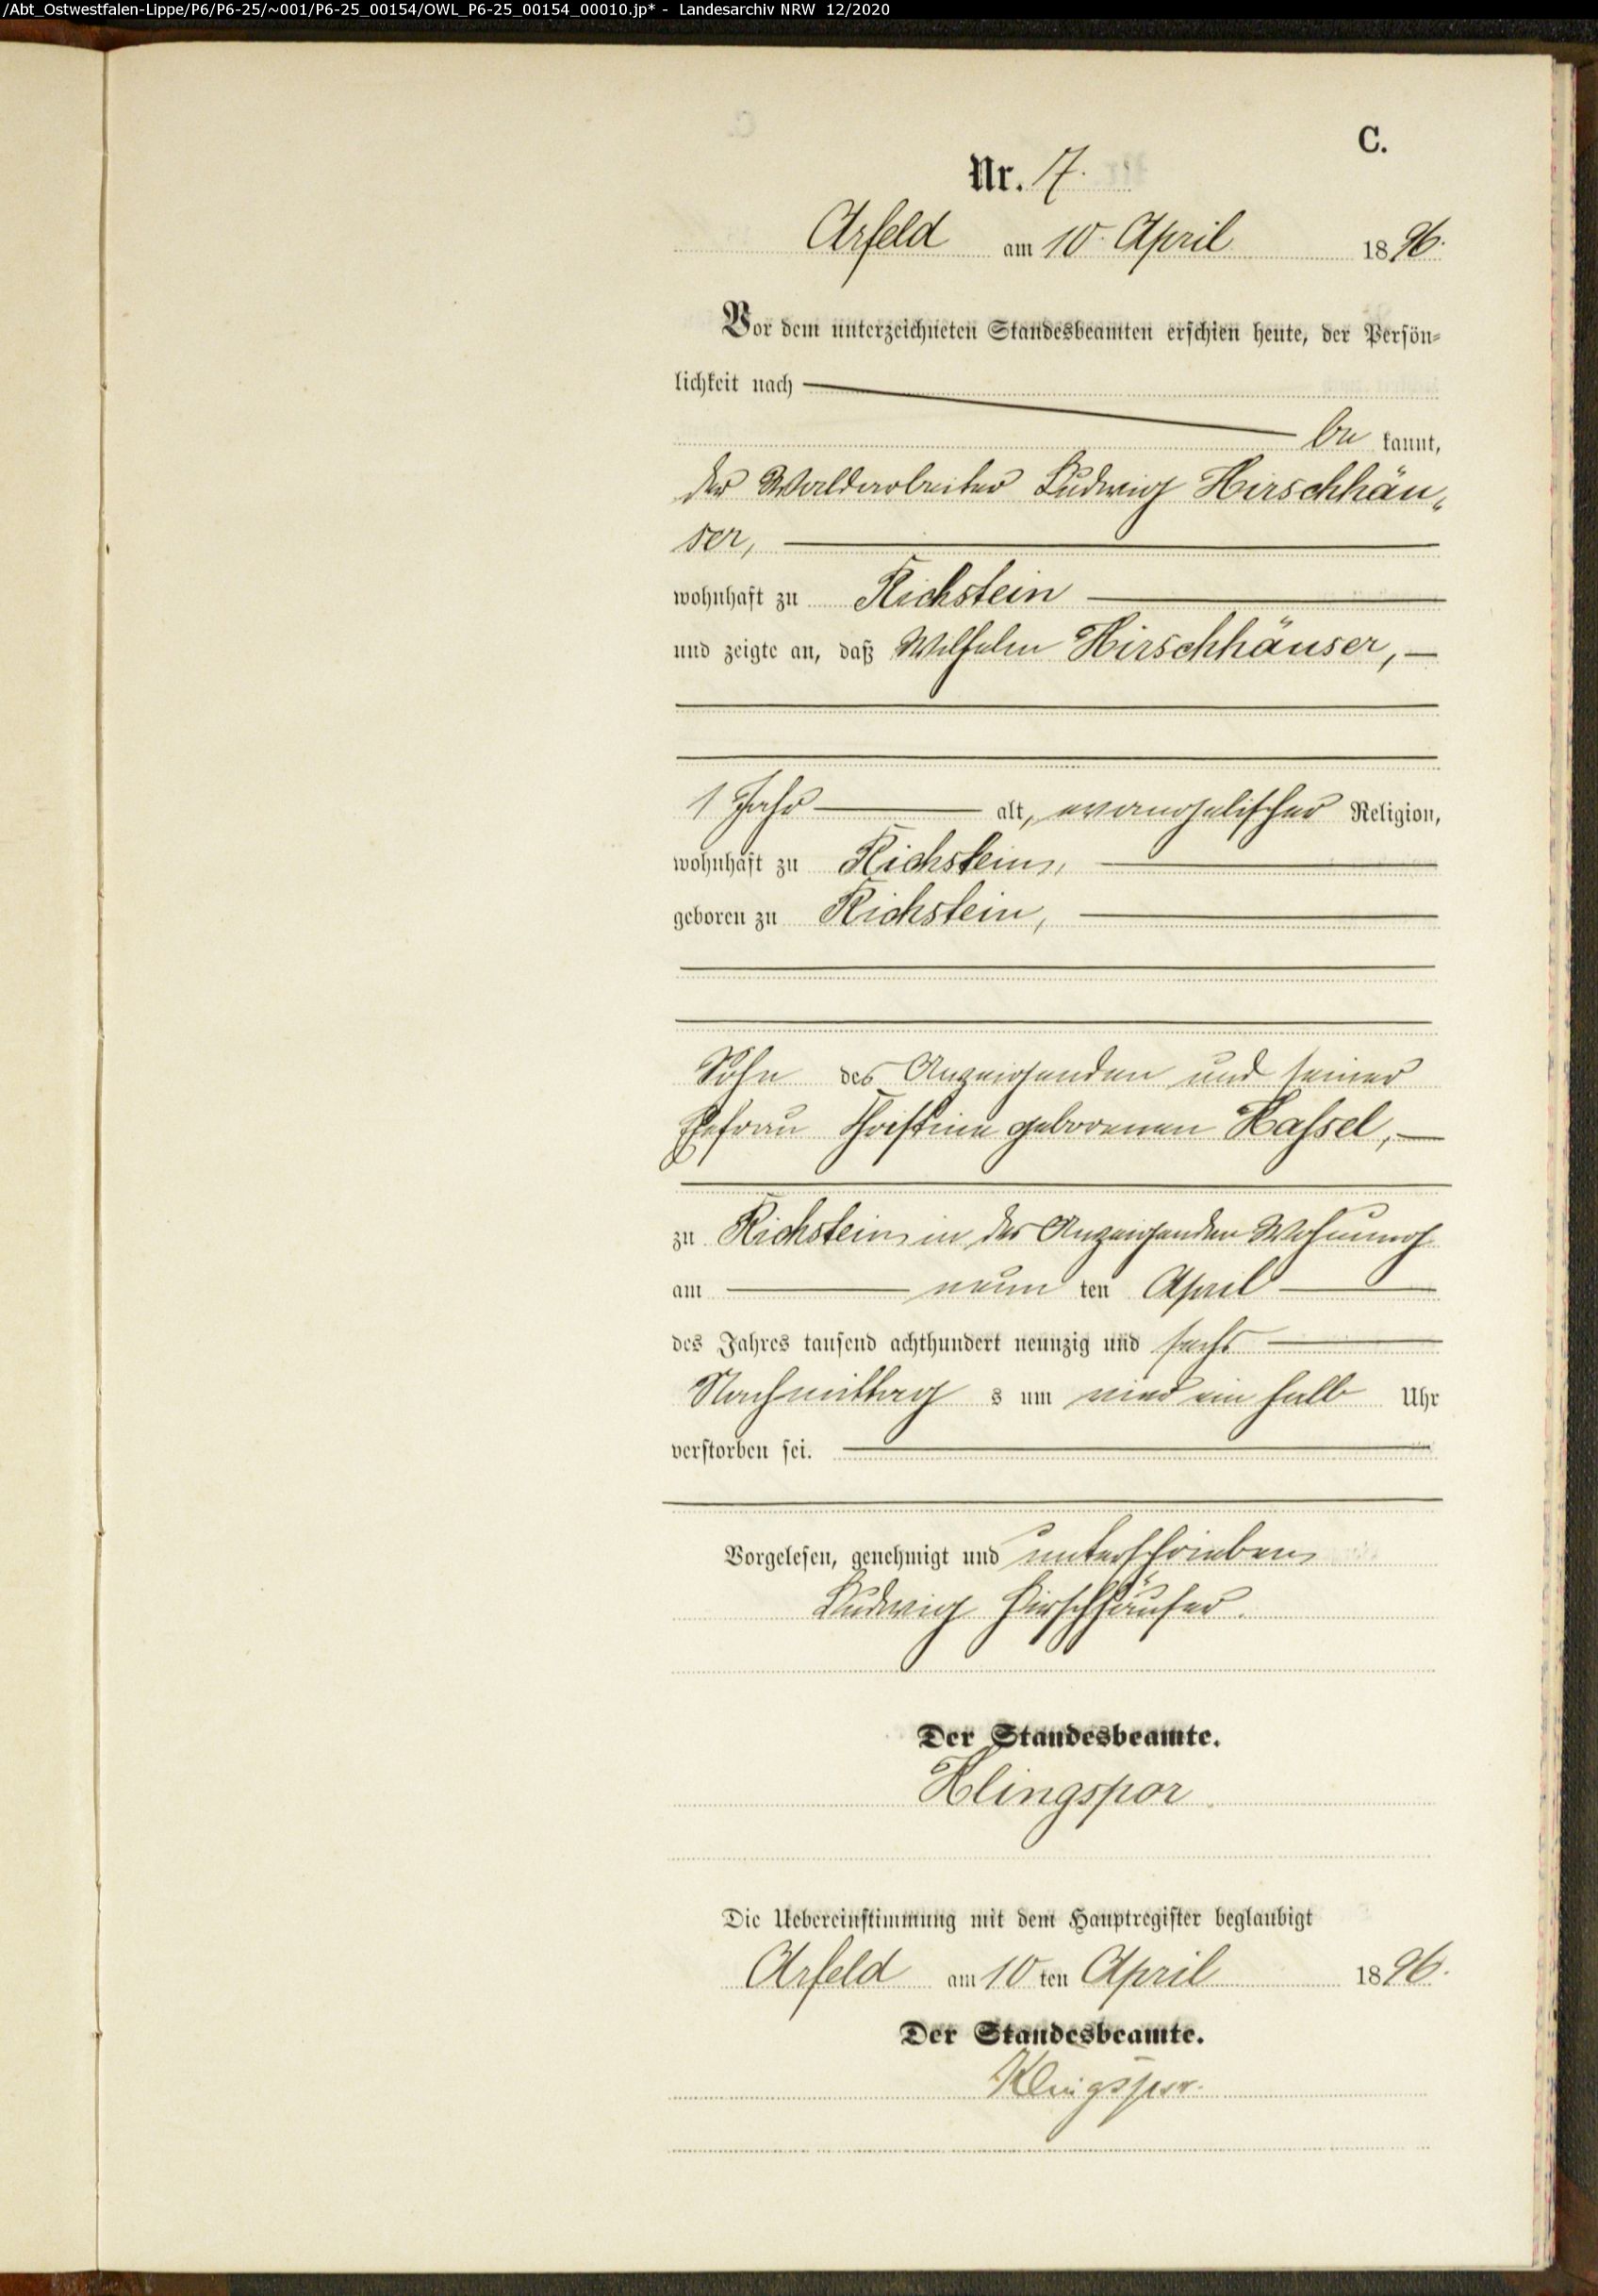 /Abt_Ostwestfalen-Lippe/P6/P6-25/~001/P6-25_00154/OWL_P6-25_00154_00010.jp* - Landesarchiv NRW 12/2020
C.
Nr. 17.
Arfeld am 10. April 1896.
Vor dem unterzeichneten Standesbeamten erschien heute, der Persön-
lichkeit nach
be kannt,
der Waldarbeiter Ludwig Hirschhäu-
ser,
wohnhaft zu Richstein
und zeigte an, daß Wilhelm Hirschhäuser,
1 Jahr alt, evangelischer Religion,
wohnhaft zu Richstein,
geboren zu Richstein,
Sohn des Anzeigenden und seiner
Ehefrau Christine geborenen Kassel,
zu Richstein, in des Anzeigenden Wohnung
am neun ten April
des Jahres tausend achthundert neunzig und sechs
Nachmittag s um vier ein halb Uhr
verstorben sei.
Vorgelesen, genehmigt und unterschrieben
Ludwig Hirschhäuser.
Der Standesbeamte.
Klingspor
Die Uebereinstimmung mit dem Hauptregister beglaubigt
Arfeld am 10 ten April 1896.
Der Standesbeamte.
Klingspor.